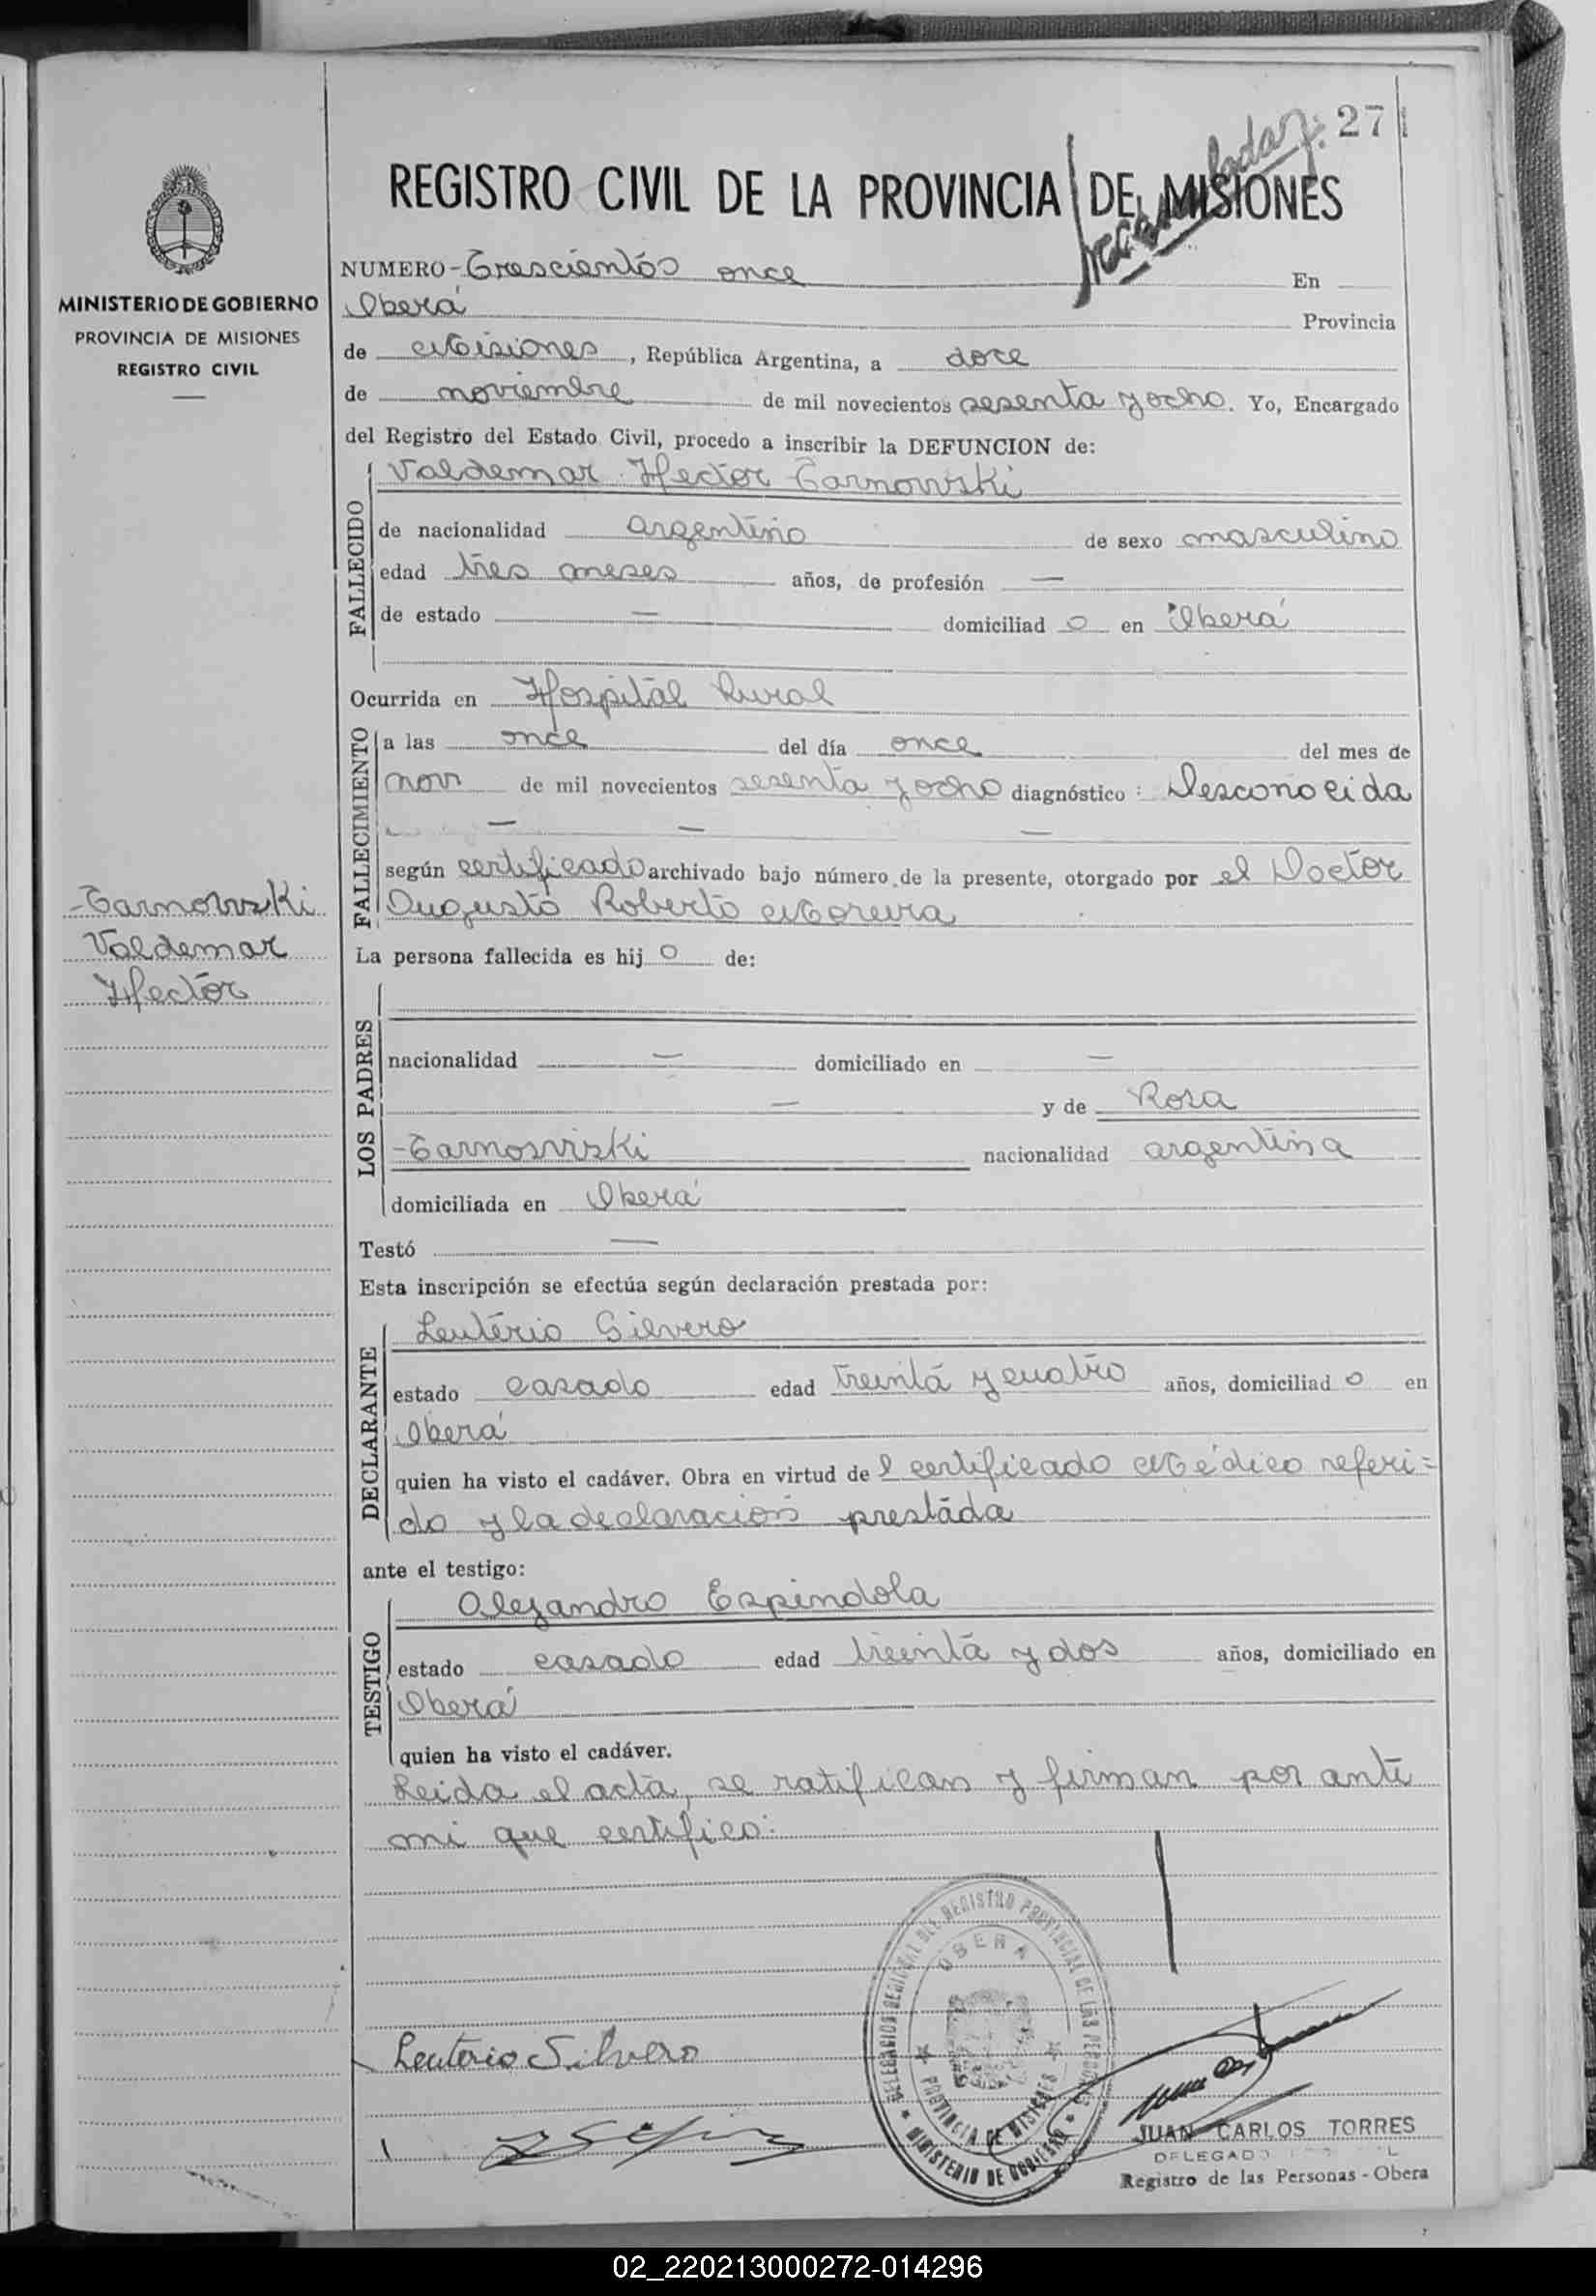 27
REGISTRO CIVIL DE LA PROVINCIA DE MISIONES
MINISTERIO DE GOBIERNO
PROVINCIA DE MISIONES
REGISTRO CIVIL
NUMERO - Trescientos once En
Oberá Provincia
de Misiones, República Argentina, a doce
de noviembre de mil novecientos sesenta y ocho. Yo, Encargado
del Registro del Estado Civil, procedo a inscribir la DEFUNCION de:
FALLECIDO
Valdemar Hector Tarnowski
de nacionalidad argentino de sexo masculino
edad tres meses años, de profesión —
de estado — domiciliad o en Oberá
Ocurrida en Hospital Rural
FALLECIMIENTO
a las once del día once del mes de
nov de mil novecientos sesenta y ocho diagnóstico: Desconocida
— — —
según certificado archivado bajo número de la presente, otorgado por el Doctor
Augusto Roberto Moreira
Tarnowski
Valdemar
Hector
La persona fallecida es hij o de:
LOS PADRES
nacionalidad — domiciliado en —
— y de Rosa
Tarnowski nacionalidad argentina
domiciliada en Oberá
Testó —
Esta inscripción se efectúa según declaración prestada por:
DECLARANTE
Leutério Silvero
estado casado edad treinta y cuatro años, domiciliad o en
Oberá
quien ha visto el cadáver. Obra en virtud de l certificado Médico referi=
do y la declaracion prestada
ante el testigo:
TESTIGO
Alejandro Espindola
estado casado edad treinta y dos años, domiciliado en
Oberá
quien ha visto el cadáver.
Leida el acta, se ratifican y firman por ante
mi que certifico:
DELEGACION REGIONAL DEL REGISTRO PROVINCIAL DE LAS PERSONAS
OBERA
PROVINCIA DE MISIONES
MINISTERIO DE GOBIERNO
Leuterio Silvero
JUAN CARLOS TORRES
DELEGADO
Registro de las Personas - Obera
02_220213000272-014296